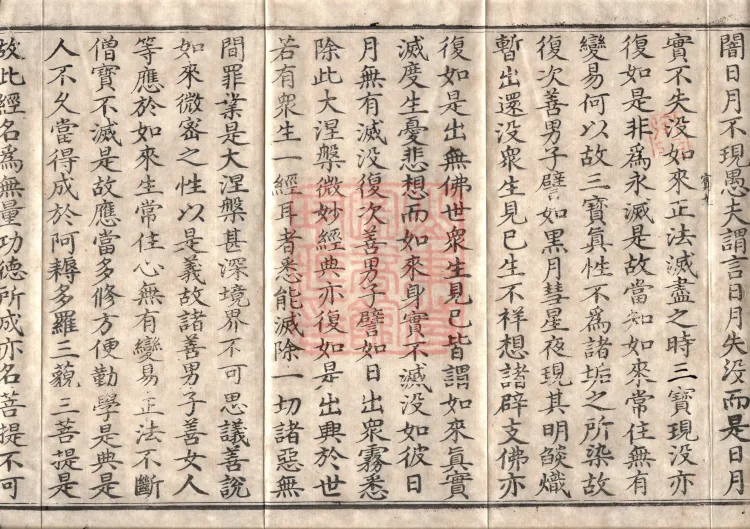 闇日月不現愚夫謂言日月失没而是日月
實不失没如來正法滅盡之時三寶現没亦
復如是非爲永滅是故當知如來常住無有
變易何以故三寶眞性不爲諸垢之所染故
復次善男子譬如黒月彗星夜現其明燄熾
暫出還没衆生見已生不祥想諸辟支佛亦
復如是出無佛世衆生見已皆謂如來眞實
滅度生憂悲想而如來身實不滅没如彼日
月無有滅没復次善男子譬如日出衆霧悉
除此大涅槃微妙經典亦復如是出興於世
若有衆生一經耳者悉能滅除一切諸惡無
間罪業是大涅槃甚深境界不可思議善說
如來微密之性以是義故諸善男子善女人
等應於如來生常住心無有變易正法不斷
僧寶不滅是故應當多修方便勤學是典是
人不久當得成於阿耨多羅三藐三菩提是
故此經名爲無量功德所成亦名菩提不可